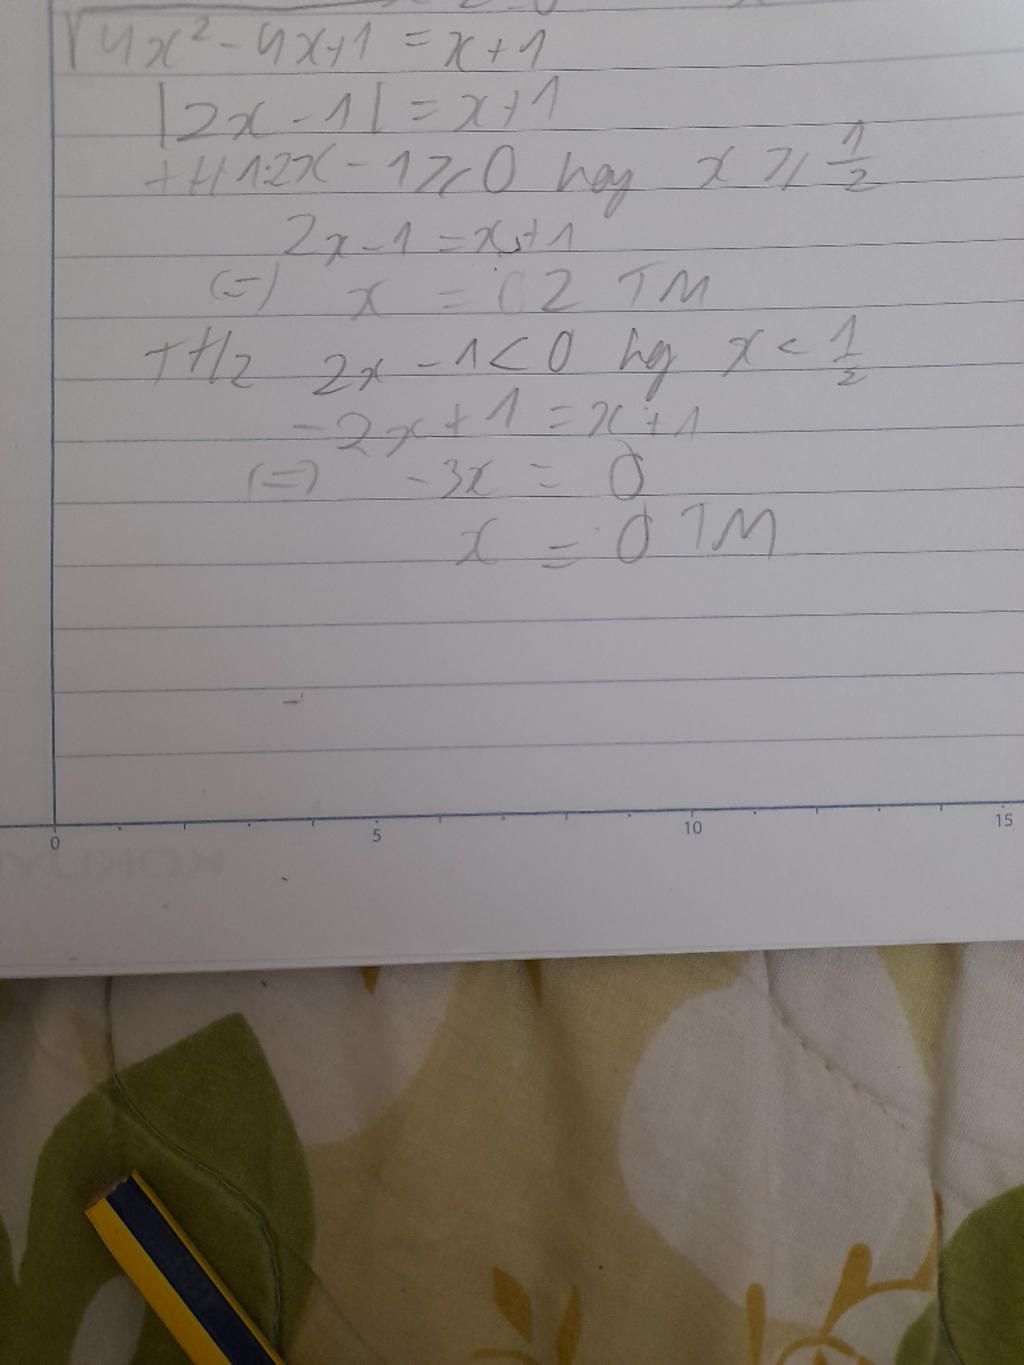 √4x² - 4x+1 = x+1
|2x - 1| = x+1
+H1:2x - 1 ≥ 0 hay x ≥ 1/2
2x-1 = x+1
(=) x = 2 TM
TH2 2x - 1 < 0 hy x < 1/2
-2x + 1 = x + 1
(=) -3x = 0
x = 0 TM
0 5 10 15